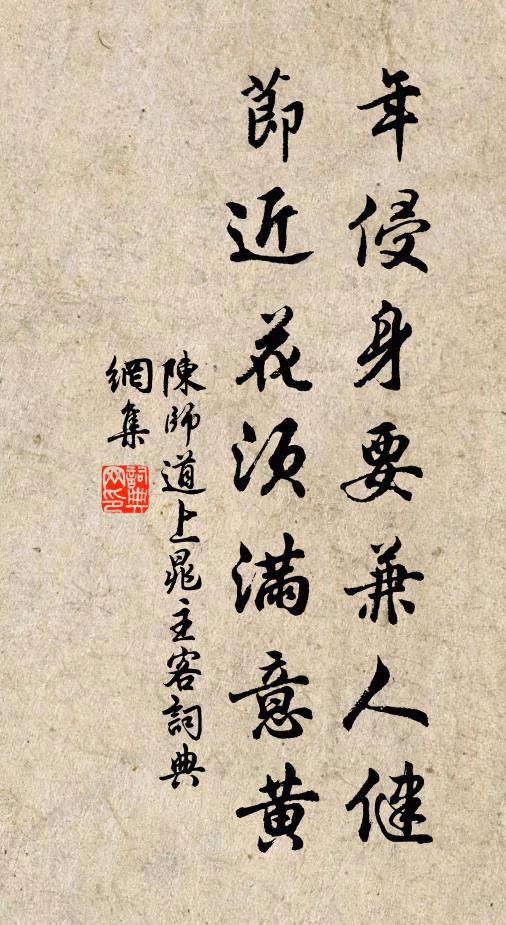 年侵身要兼人健
節近花須滿意黄
陳師道上晁主客詞典
網集
詞典網印